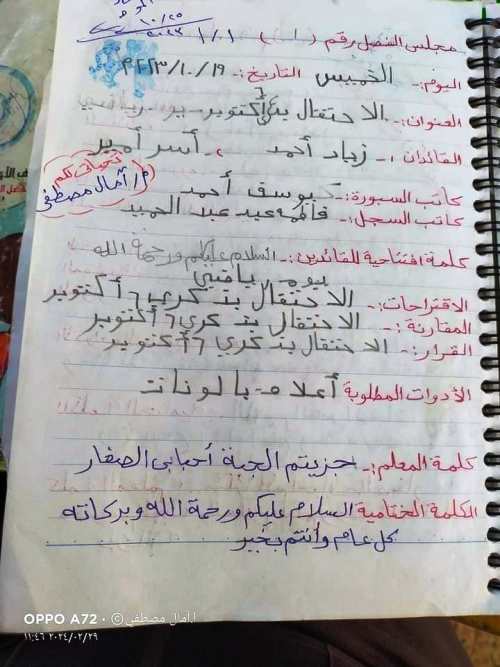 ١٠/٢٥
٢٠٢٣
مجلس الفصل رقم (١) ١/١
اليوم:- الخميس التاريخ:- ٢٠٢٣/١٠/١٩م
العنوان:- الاحتفال بذكرى ٦ أكتوبر - يوم رياضي
القائدان:- زياد أحمد ، أسر أمير
كاتب السبورة:- يوسف أحمد
كاتب السجل:- فاطمة عيد عبد الحميد
تحياتي لكم
م/ آمال مصطفى
كلمة افتتاحية للقائدين:- السلام عليكم ورحمة الله
يوم رياضي
الاقتراحات:- الاحتفال بذكرى ٦ أكتوبر
المقارنة:- الاحتفال بذكرى ٦ أكتوبر
القرار:- الاحتفال بذكرى ٦ أكتوبر
الأدوات المطلوبة أعلام - بالونات
كلمة المعلم:- جزيتم الجنة أحبابى الصغار
الكلمة الختامية السلام عليكم ورحمة الله وبركاته
كل عام وأنتم بخير
OPPO A72 · © أ.آمال مصطفي
٢٠٢٤/٠٢/٢٩ ١١:٤٦